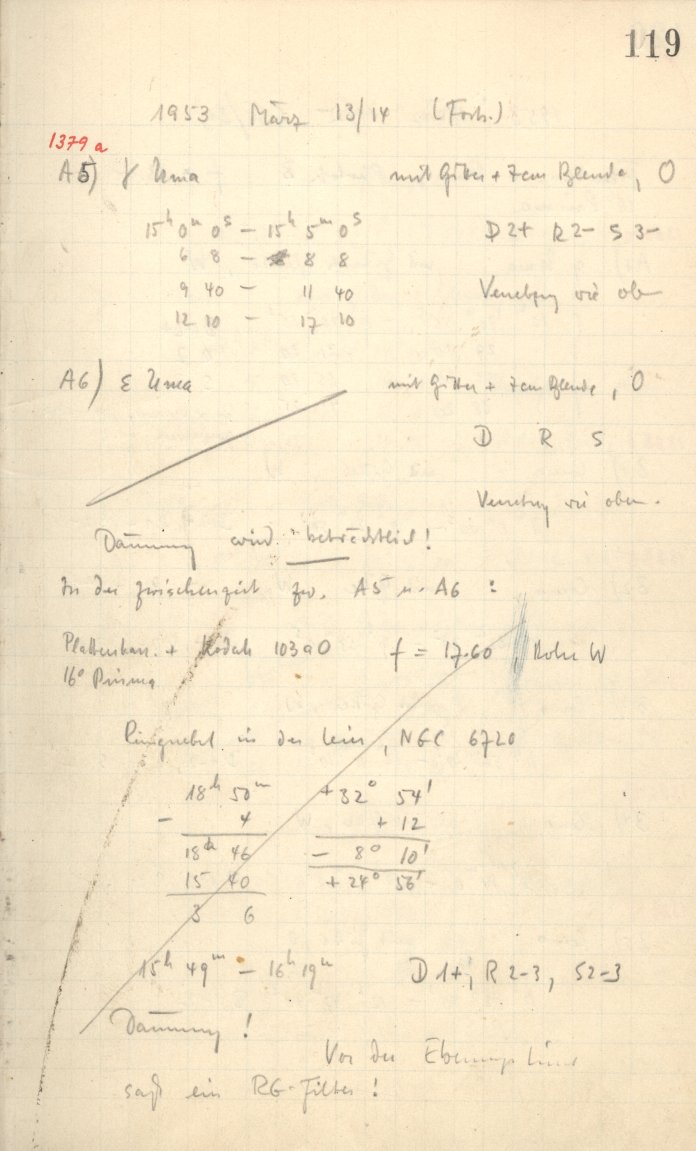 119
1953 März 13/14 (Forts.)
1379 a
A5) γ Uma mit Gitter + 7cm Blende, O
15ʰ 0ᵐ 0ˢ — 15ʰ 5ᵐ 0ˢ D 2+ R 2- S 3-
6 8 — 8 8
9 40 — 11 40 wie oben
12 10 — 17 10
A6) ε Uma mit Gitter + 7cm Blende, O
D R S
wie oben.
Dämmung wird beträchtlich!
In der Zwischenzeit zw. A5 u. A6 :
Plattenkass. + Kodak 103aO f = 17.60, Rohr W
16° Prisma
Ringnebel in der Leier, NGC 6720
18ʰ 50ᵐ +32° 54'
- 4 + 12
18ʰ 46 - 8° 10'
15 40 + 24° 56'
3 6
15ʰ 49ᵐ — 16ʰ 19ᵐ D 1+, R 2-3, S 2-3
Dämmung!
Vor der
saß ein RG-Filter!